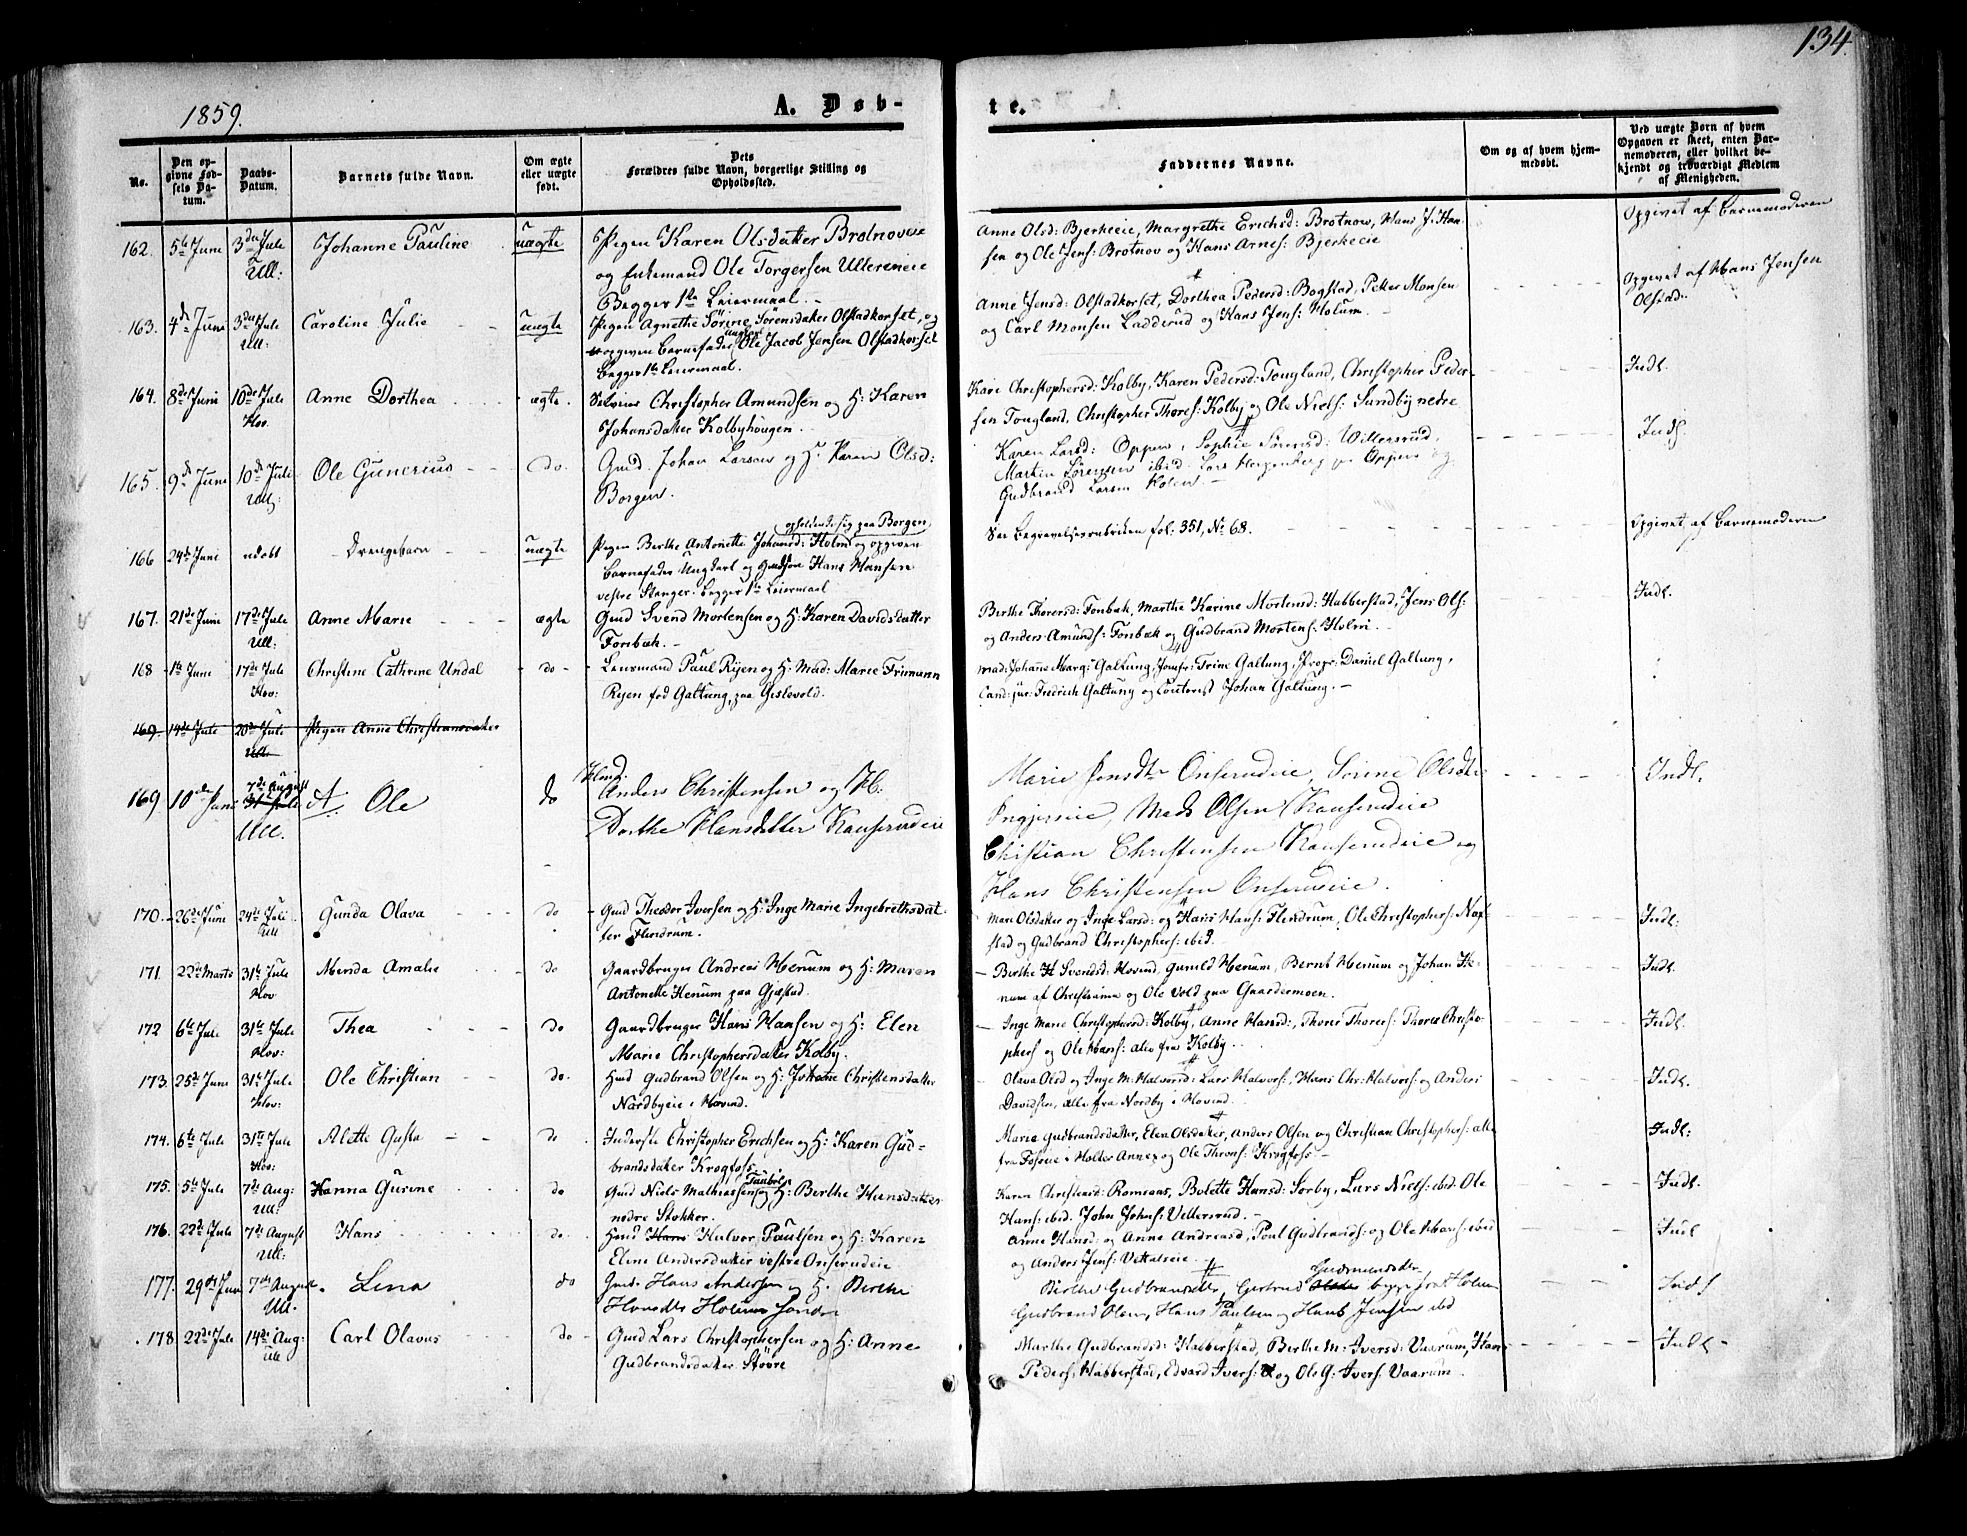 134.
1859.
A. Døb-
te.
No.
Den op-
givne Fød-
sels Da-
tum.
Daabs-
Datum.
Barnets fulde Navn.
Om ægte
eller uægte
født.
Dets
Forældres fulde Navn, borgerlige Stilling og
Opholdssted.
Faddernes Navne.
Om og af hvem hjem-
medøbt.
Ved uægte Børn af hvem
Opgaven er skeet, enten Bar-
nemoderen, eller hvilket be-
kjendt og troværdigt Medlem
af Menigheden.
162. 5te Juni 3die Jule Johanne Pauline uægte Pigen Karen Olsdatter Brotnoveie
Ull: og Enkemand Ole Torgersen Ullereneie
Begger 1ste Leiermaal.
Anne Olsd: Bjerkeeie, Margrethe Erichsd: Brotnow, Hans J: Han-
sen og Ole Jens: Brotnov og Hans Arnes: Bjerkeeie
Opgivet af Barnemoderen
163. 4de Juni 3die Jule Caroline Julie uægte Pigen Agnethe Sørine Sørensdatter Olstadkorset, og
Ull: opgiven Barnefader Ungkarl Ole Jacob Jensen Olstadkorset
Begger 1ste Leiermaal.
Anne Jensd: Olstadkorset, Dorthea Pedersd: Bogstad, Peter Monsen
og Carl Monsen Ladderud og Hans Jens: Holum.
Opgivet af Hans Jensen
Olstad.
164. 8de Juni 10de Jule Anne Dorthea ægte. Selveier Christopher Amundsen og H: Karen
Hov. Johansdatter Kolbyhougen.
Kari Christophersd: Kolby, Karen Pedersd: Tougland, Christopher Peder-
sen Tougland, Christopher Thores: Kolby og Ole Niels: Sundby nedre
Indl.
165. 9de Juni 10de Juli Ole Gunerius do. Gmd. Johan Larsen og H. Karen Olsd:
Ull: Borgen.
Karen Larsd: Oppen, Sophie Sørensd: Willersrud,
Martin Sørensen ibid. Lars pr Oppen og
Gudbrand Larsen Holen.
Indl.
166 24de Juni udøbt Drengebarn uægte Pigen Berthe Antonette Johansd: Holm opholdende sig paa Borgen og opgiven
Barnefader Ungkarl og Hans Hansen
vestre Stanger. Begger 1ste Leiermaal
See Begravelsesrubriken fol. 351, No 68.
Opgivet af Barnemoderen
167. 21de Juni 17de Jule Anne Marie ægte Gmd Svend Mortensen og H: Karen Davidsdatter
Ull: Fonbæk.
Berthe Thorersd: Fonbæk, Marthe Karine Mortensd: Habberstad, Jens Ols:
og Anders Amunds: Fonbæk og Gudbrand Mortens: Holm.
Indl.
168 1ste Juni 17de Jule Christine Cathrine Undal do Lensmand Paul Ryen og H: Mad: Marie Frimann
Hov: Ryen fød Galtung, paa Gislevold.
Mad: Johanne Marg: Galtung, Jomfr: Trine Galtung, Propr: Daniel Galtung,
Cand: jur: Fredrich Galtung og Contorist Johan Galtung.
169. 14de Jule 20de Jule Pigen Anne Christiansdatter
Ull.
169 10de Juni 31te Jule 7de August Ole do Hmd: Anders Christensen og H:
Ull. Dorthe Hansdatter Kauserudeie
Marie Jensdtr Onserudeie, Sørine Olsdtr
Ingjereie, Mads Olsen Kauserudeie
Christian Christensen Kauserudeie og
Hans Christensen Onserudeie.
Indl.
170. 26de Juni 24de Juli Gunda Olava do Gmd Theodor Iversen og H: Inge Marie Ingebrethsdat-
Ull ter Flendrum.
Mari Olsdatter og Inge Larsd: og Hans Hans: Flendrum, Ole Christophers: Nap-
stad og Gudbrand Christophers: ibid.
Indl:
171. 22de Marts 31te Jule Menda Amalie do Gaardbruger Andreas Henum og H: Maren
Hov Antonette Henum paa Gjæstad.
Berthe H Svendsd: Hovind, Gunild Henum, Bernt Henum og Johan He-
num af Christiania og Ole Vold paa Gaardermoen.
Indl.
172 6te Jule 31te Jule Thea do Gaardbruger Hans Hansen og H: Elen
Hov: Marie Christophersdatter Kolby.
Inge Marie Christophersd: Kolby, Anne Hansd:, Thorer Thorers: Thorer Christo-
phers og Ole Hans: alle fra Kolby.
Indl.
173. 25de Juni 31te Jule Ole Christian do. Hmd Gudbrand Olsen og H: Johane Christensdatter
Hov: Nordbyeie i Hovind.
Olava Olsd og Inge M: Halvorsd: Lars Halvors:, Hans Chr: Halvors: og Anders
Davidsen, alle fra Nordby i Hovind.
Indl.
174. 6te Jule 31te Jule Alette Gusta do Inderste Christopher Erichsen og H: Karen Gud-
Hov: brandsdatter Krogfoss.
Marie Gudbrandsdatter, Elen Olsdatter, Anders Olsen og Christian Christophers: alle
fra Foseie i Holter Annex og Ole Throns: Krogfoss
Indl:
175. 5te Jule 7de Aug: Hanna Gurine do Gmd Niels Mathiassen og H: Berthe Hansdatter
Ull: nedre Stokker.
Karen Christensd: Romsaas, Bolette Hansd: Sørby, Lars Niels: ibid. Ole
Hans: ibid. John Johns: Vellersrud.
Indl.
176. 22de Jule 7de August Hans do. Hmd Hans Halvor Paulsen og H: Karen
Ull: Eline Andersdatter vestre Onserudeie
Anne Hansd: og Anne Andreasd, Poul Gudbrands: og Ole Hans: ibid
og Anders Jens: Vettaleie.
Indl
177. 29de Juni 7de August Lina do Gmd. Hans Andersen og H. Berthe
Ull. Hansdtr Holum søndre
Berthe Gudbrandsdtr, Gertrud Gudmundsdtr begge fra Holum
Gudbrand Olsen, Hans Paulsen og Hans Jensen ibd
Indl
178 22de Jule 14de Aug: Carl Olavus do Gmd Lars Christophersen og H: Anne
Ull Gudbrandsdatter Støvre
Marthe Gudbrandsd: Habberstad, Berthe M: Iversd: Vaarum, Hans
Peders: Habberstad, Edvard Ivers: og Ole G: Ivers: Vaarum.
Indl